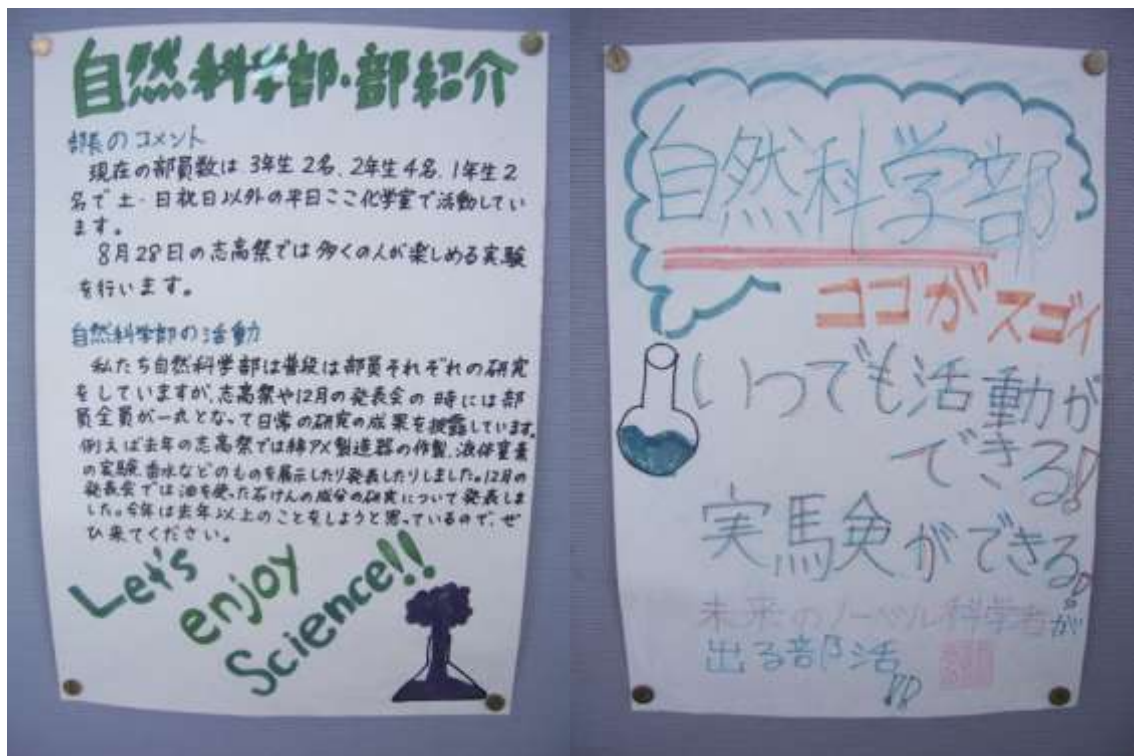 自然科学部・部紹介
部長のコメント
現在の部員数は3年生2名、2年生4名、1年生2
名で土・日祝日以外の平日ここ化学室で活動してい
ます。
8月28日の志高祭では多くの人が楽しめる実験
を行います。
自然科学部の活動
私たち自然科学部は普段は部員それぞれの研究
をしていますが、志高祭や12月の発表会の時には部
員全員が一丸となって日常の研究の成果を披露しています。
例えば去年の志高祭では綿アメ製造器の作製、液体窒素
の実験、香水などのものを展示したり発表したりしました。12月の
発表会では油を使った石けんの成分の研究について発表しま
した。今年は去年以上のことをしようと思っているので、ぜ
ひ来てください。
Let's
enjoy
Science!!
自然科学部
ココがスゴイ
いつでも活動が
できる!
実験ができる!
未来のノーベル科学者が
出る部活!!